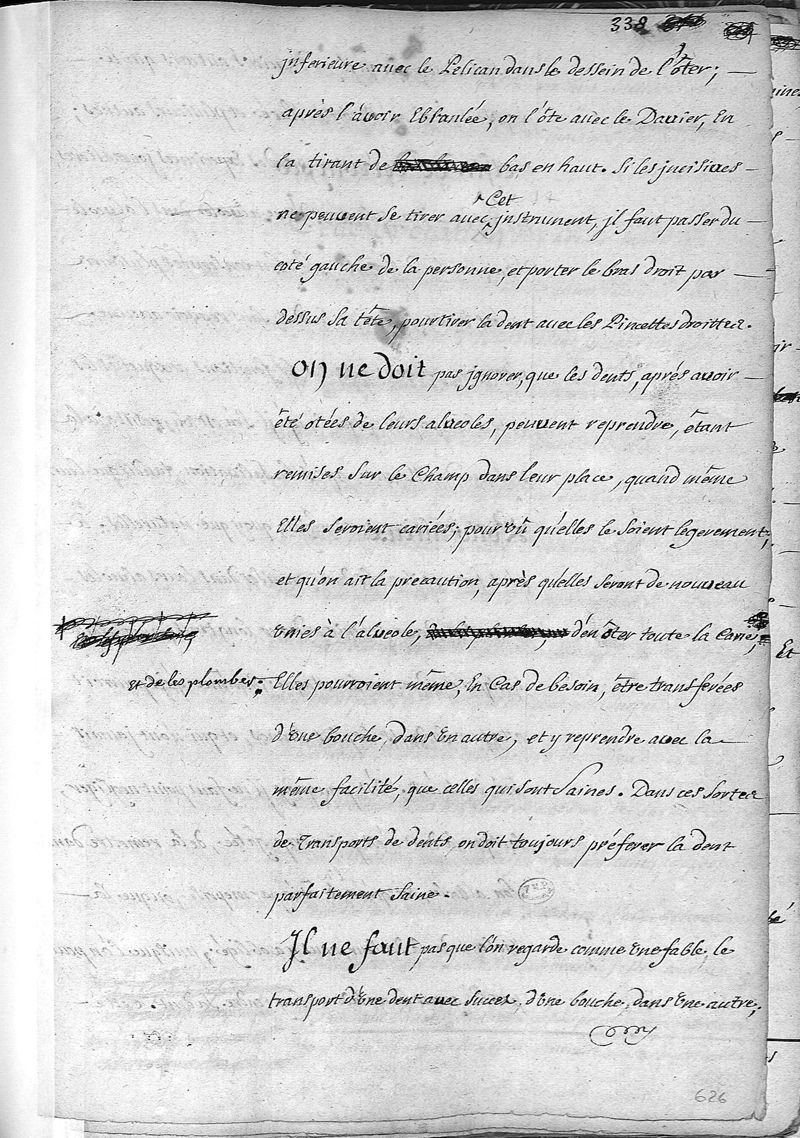 338
jnferieure avec le Pelican dans le dessein de l'ôter;
après l'avoir Ebranlée, on l'ôte avec le Davier, En
la tirant de bas en haut. Si les jncisives
Cet
ne peuvent se tirer avec jnstrument, jl faut passer du
coté gauche de la personne, et porter le bras droit par
dessus sa tête, pour tirer la dent avec les Pincettes droittes.
On ne doit pas jgnorer, que les dents, aprés avoir
êté otées de leurs alveoles, peuvent reprendre, êtant
remises sur le Champ dans leur place, quand même
Elles seroient cariées; pourvû qu'elles le soient legerement,
et qu'on ait la precaution, après qu'elles seront de nouveau
unies à l'alveole, d'en ôter toute la Carie,
et de les plomber.
Elles pourroient même, En Cas de besoin, être transferées
d'une bouche, dans un autre, et y reprendre avec la
même facilité, que celles qui sont Saines. Dans ces Sortes
de transports de dents, on doit toujours préferer la dent
parfaitement Saine.
Jl ne faut pas que l'on regarde comme une fable, le
transport d'une dent avec Succez, d'une bouche, dans une autre;
626